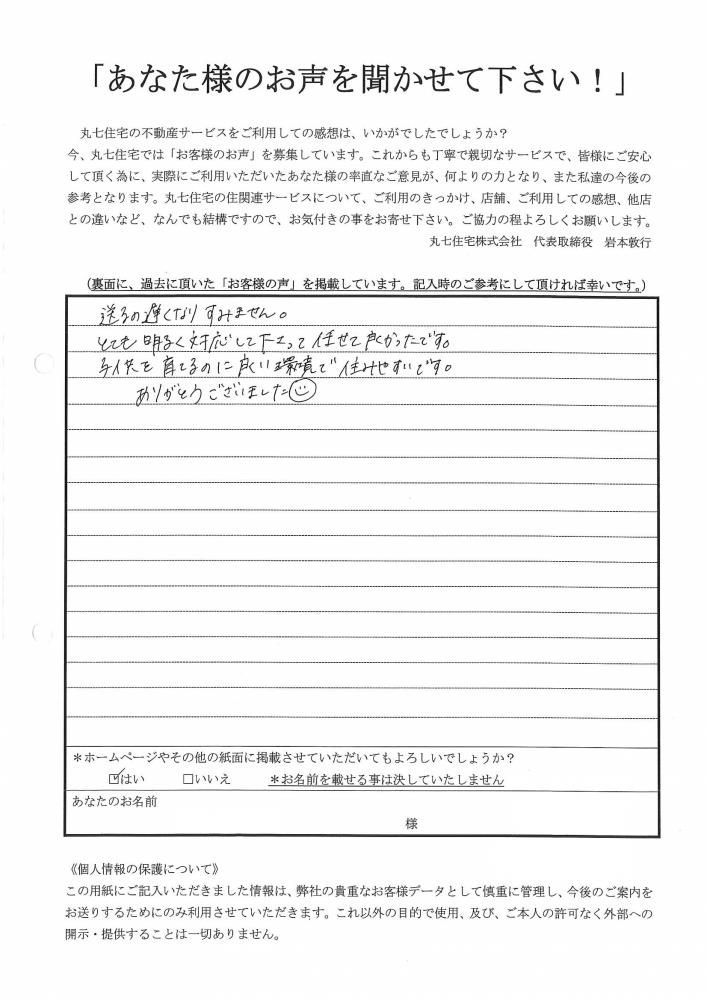 「あなた様のお声を聞かせて下さい！」
丸七住宅の不動産サービスをご利用しての感想は、いかがでしたでしょうか？
今、丸七住宅では「お客様のお声」を募集しています。これからも丁寧で親切なサービスで、皆様にご安心
して頂く為に、実際にご利用いただいたあなた様の率直なご意見が、何よりの力となり、また私達の今後の
参考となります。丸七住宅の住関連サービスについて、ご利用のきっかけ、店舗、ご利用しての感想、他店
との違いなど、なんでも結構ですので、お気付きの事をお寄せ下さい。ご協力の程よろしくお願いします。
丸七住宅株式会社　代表取締役　岩本敦行
（裏面に、過去に頂いた「お客様の声」を掲載しています。記入時のご参考にして頂ければ幸いです。）
送るの遅くなりすみません。
とても明るく対応して下さって任せて良かったです。
子供を育てるのに良い環境で住みやすいです。
ありがとうございました☺
＊ホームページやその他の紙面に掲載させていただいてもよろしいでしょうか？
☑はい　□いいえ　＊お名前を載せる事は決していたしません
あなたのお名前
様
《個人情報の保護について》
この用紙にご記入いただきました情報は、弊社の貴重なお客様データとして慎重に管理し、今後のご案内を
お送りするためにのみ利用させていただきます。これ以外の目的で使用、及び、ご本人の許可なく外部への
開示・提供することは一切ありません。